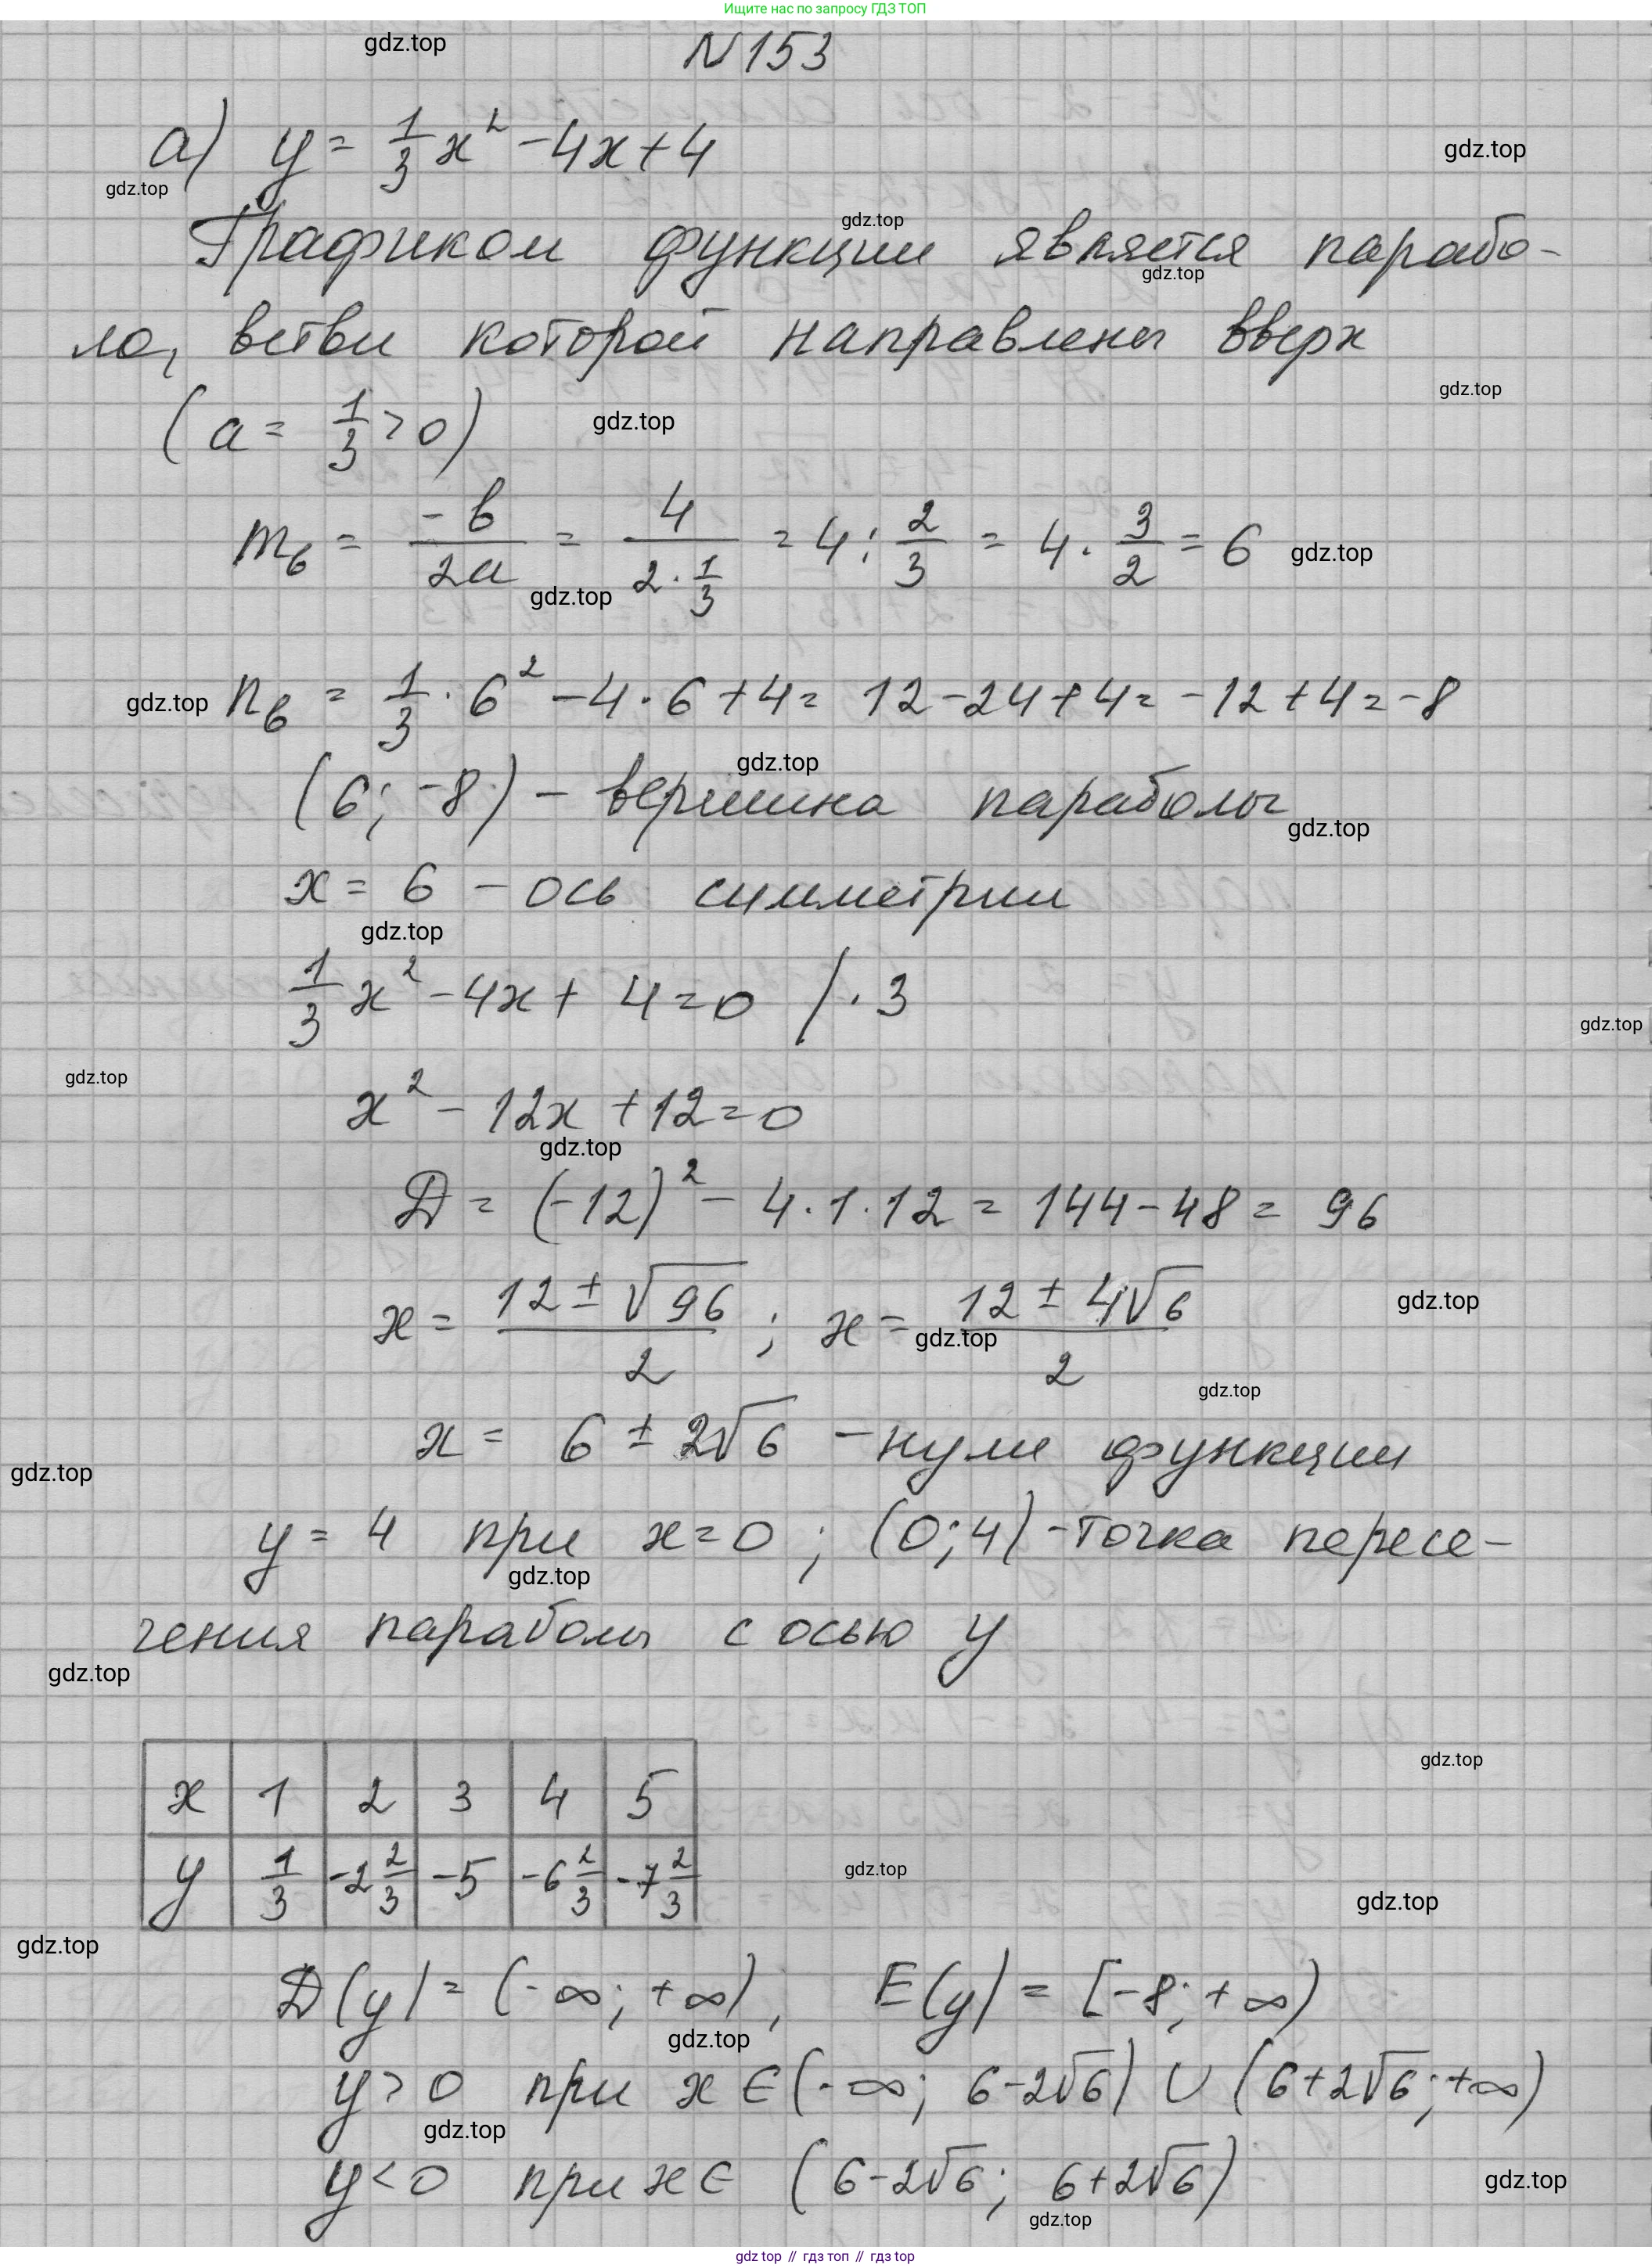 Ищите нас по запросу ГДЗ ТОП
gdz.top
N 153
а) y = 1/3 x² - 4x + 4
gdz.top
gdz.top
gdz.top
Графиком функции является парабо-
gdz.top
ла, ветви которой направлены вверх
gdz.top
(a = 1/3 > 0)
gdz.top
m_в = -в/2a = 4/(2·1/3) = 4 : 2/3 = 4 · 3/2 = 6
gdz.top
gdz.top
gdz.top
n_в = 1/3 · 6² - 4 · 6 + 4 = 12 - 24 + 4 = -12 + 4 = -8
gdz.top
(6; -8) - вершина параболы
gdz.top
x = 6 - ось симметрии
gdz.top
1/3 x² - 4x + 4 = 0 / · 3
gdz.top
gdz.top
x² - 12x + 12 = 0
gdz.top
D = (-12)² - 4 · 1 · 12 = 144 - 48 = 96
x = (12 ± √96)/2 ; x = (12 ± 4√6)/2
gdz.top
gdz.top
gdz.top
x = 6 ± 2√6 - нули функции
gdz.top
y = 4 при x = 0 ; (0; 4) - точка пересе-
gdz.top
чения параболы с осью y
gdz.top
gdz.top
x 1 2 3 4 5
y 1/3 -2 2/3 -5 -6 2/3 -7 2/3
gdz.top
gdz.top
gdz.top
D(y) = (-∞; +∞), E(y) = [-8; +∞)
gdz.top
y > 0 при x ∈ (-∞; 6-2√6) ∪ (6+2√6; +∞)
gdz.top
y < 0 при x ∈ (6-2√6; 6+2√6)
gdz.top
gdz.top
gdz top // гдз топ // гдз top